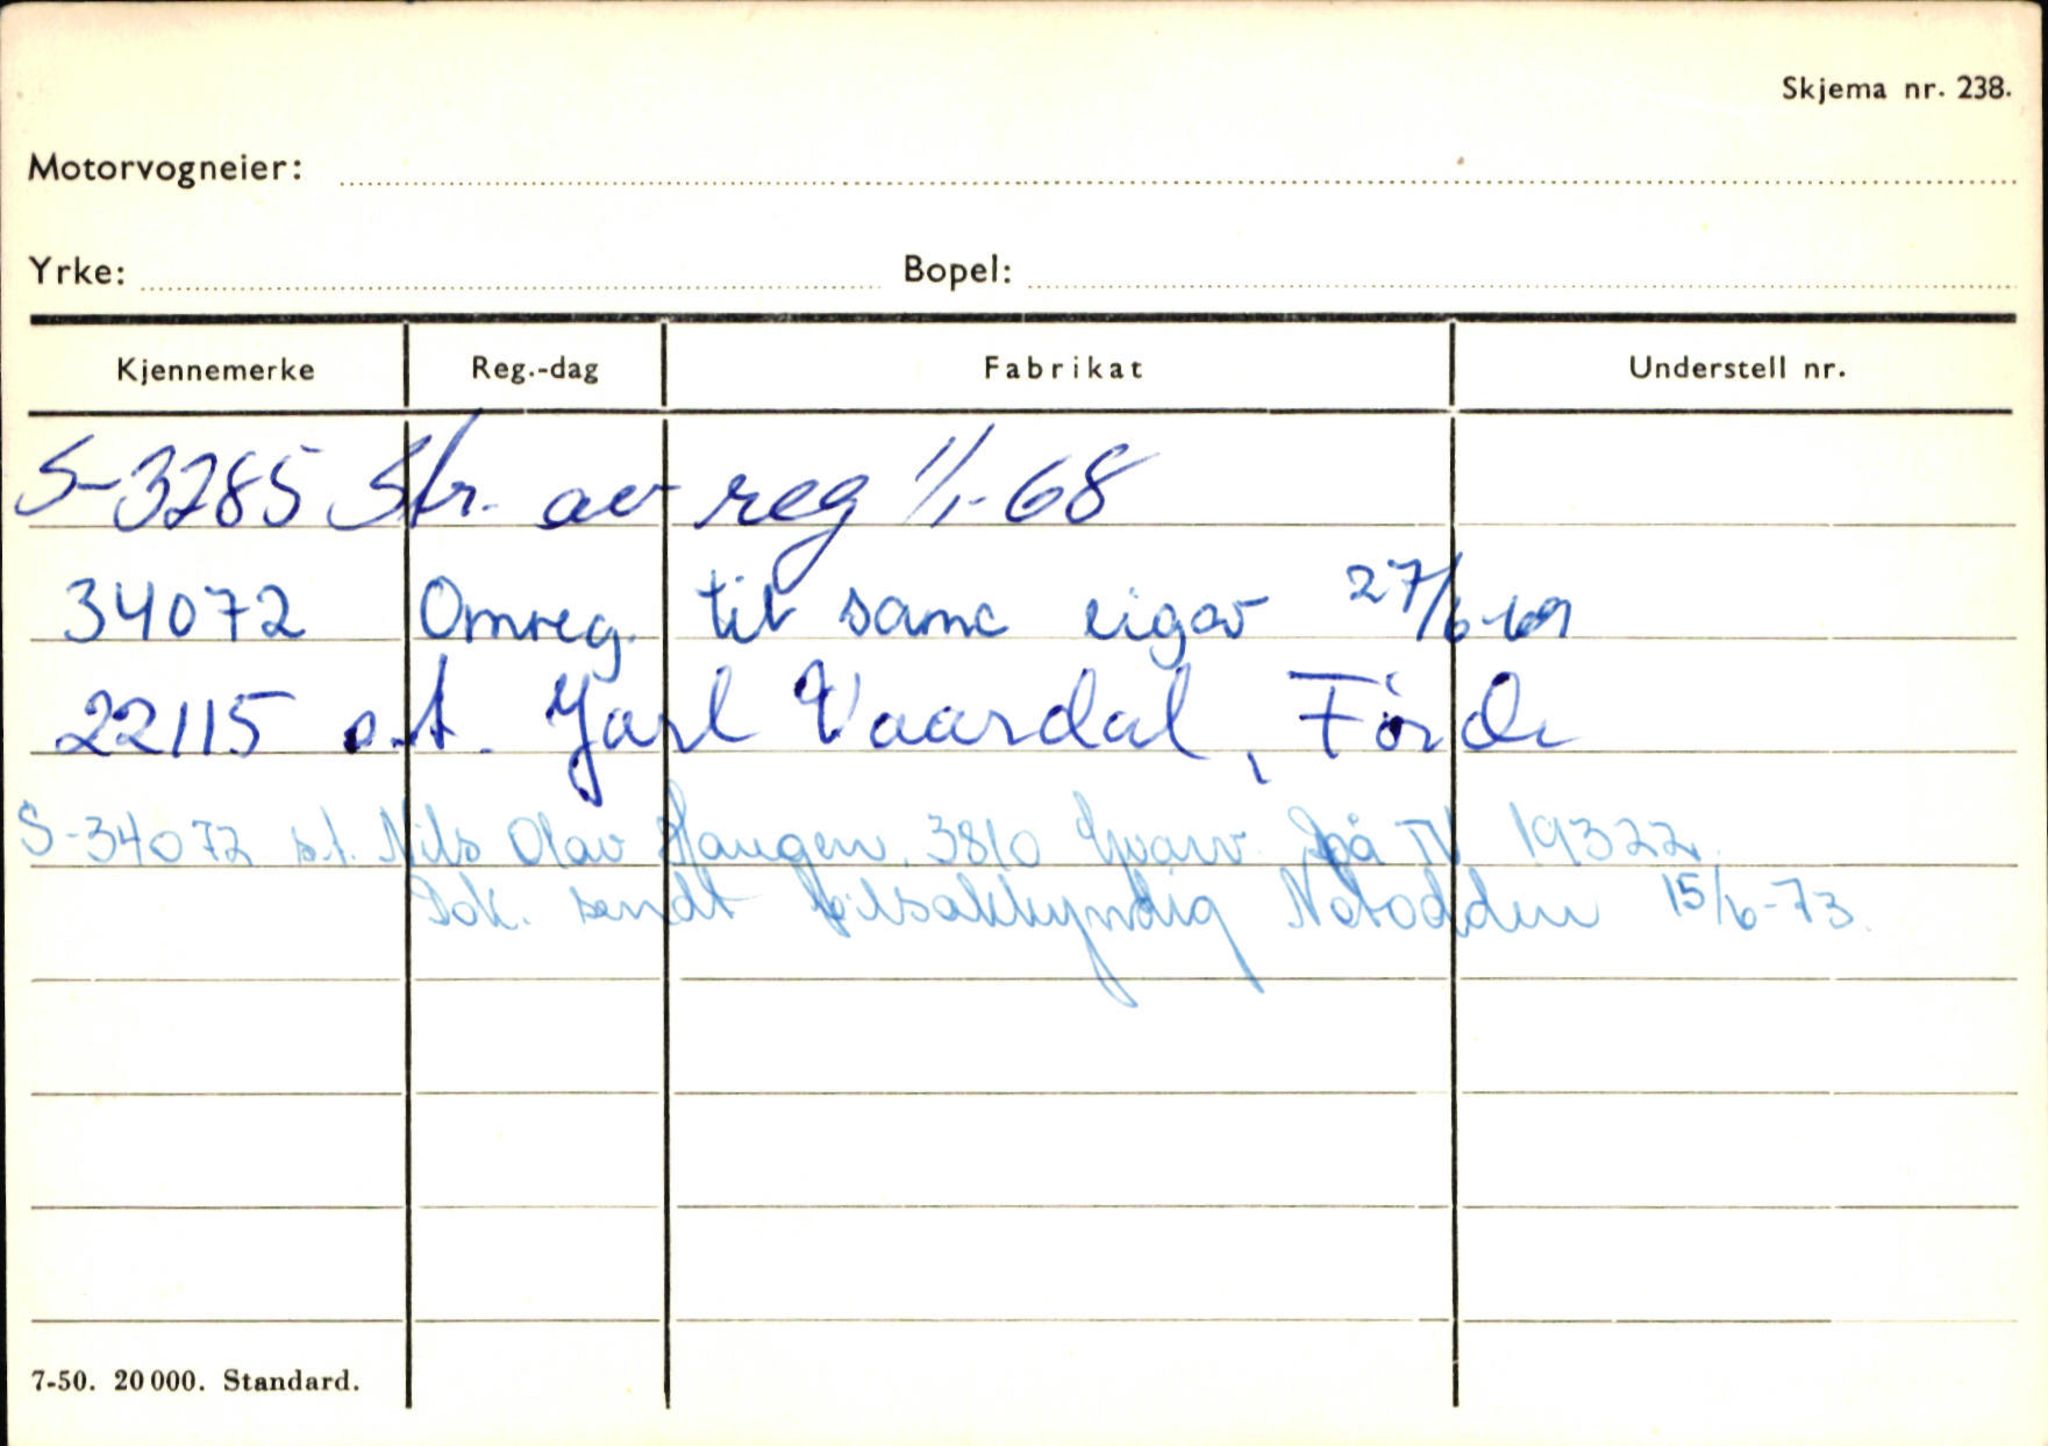 Skjema nr. 238.
Motorvogneier:
Yrke: Bopel:
Kjennemerke Reg.-dag Fabrikat Understell nr.
S-3285 Str. av reg 1/1-68
34072 Omreg. til same eigar 27/6-69
22115 o.t. Jarl Vaardal, Förde
S-34072 s.t. Nils Olav Haugen, 3810 Gvarv. På TV 19322.
Dok. sendt bilsakkyndig Notodden 15/6-73.
7-50. 20 000. Standard.